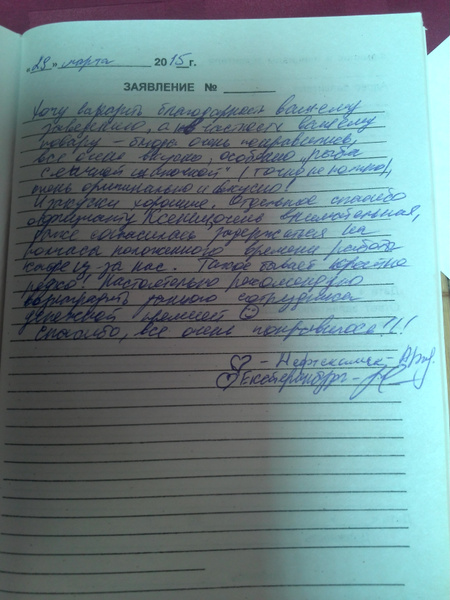 "29" марта 2015 г.
ЗАЯВЛЕНИЕ №
Хочу выразить благодарность вашему
заведению, а в частности вашему
повару - блюда очень понравились,
все очень вкусно, особенно "рыба
с яичной начинкой" (точно не помню),
очень оригинально и вкусно!
И закуски хорошие. Отдельное спасибо
официанту Ксении, очень внимательная,
даже согласилась задержаться на
полчаса положенного времени работы
кафе из за нас. Такое бывает
редко! Настоятельно рекомендую
наградить данного сотрудника
денежной премией
Спасибо, все очень понравилось!!!
- Нефтекамск -
Екатеринбург -